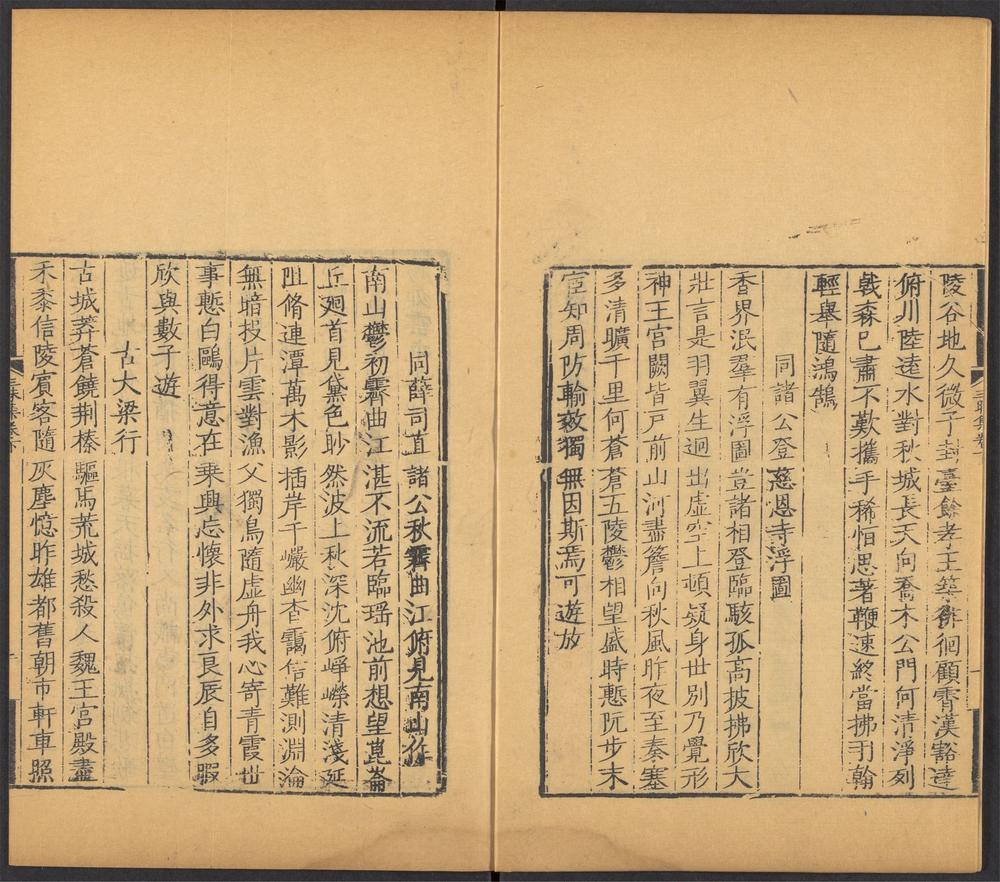 陵谷地久微子封臺餘孝王築徘徊顧霄漢豁達
俯川陸遠水對秋城長天向喬木公門何清淨列
戟森已肅不歎攜手稀恒思著鞭速終當拂羽翰
輕舉隨鴻鵠
同諸公登慈恩寺浮圖
香界泯羣有浮圖豈諸相登臨駭孤高披拂欣大
壯言是羽翼生迥出虛空上頓疑身世別乃覺形
神王宮闕皆戶前山河盡簷向秋風昨夜至秦塞
多清曠千里何蒼蒼五陵鬱相望盛時慙阮步末
宦知周防輸效獨無因斯焉可遊放
同薛司直諸公秋霽曲江俯見南山作
南山鬱初霽曲江湛不流若臨瑤池前想望崑崙
丘迴首見黛色眇然波上秋深沈俯崢嶸清淺延
阻脩連潭萬木影插岸千巖幽杳靄信難測淵淪
無暗投片雲對漁父獨鳥隨虛舟我心寄青霞世
事慙白鷗得意在乘興忘懷非外求良辰自多暇
欣與數子遊
古大梁行
古城莽蒼饒荆榛驅馬荒城愁殺人魏王宮殿盡
禾黍信陵賓客隨灰塵憶昨雄都舊朝市軒車照